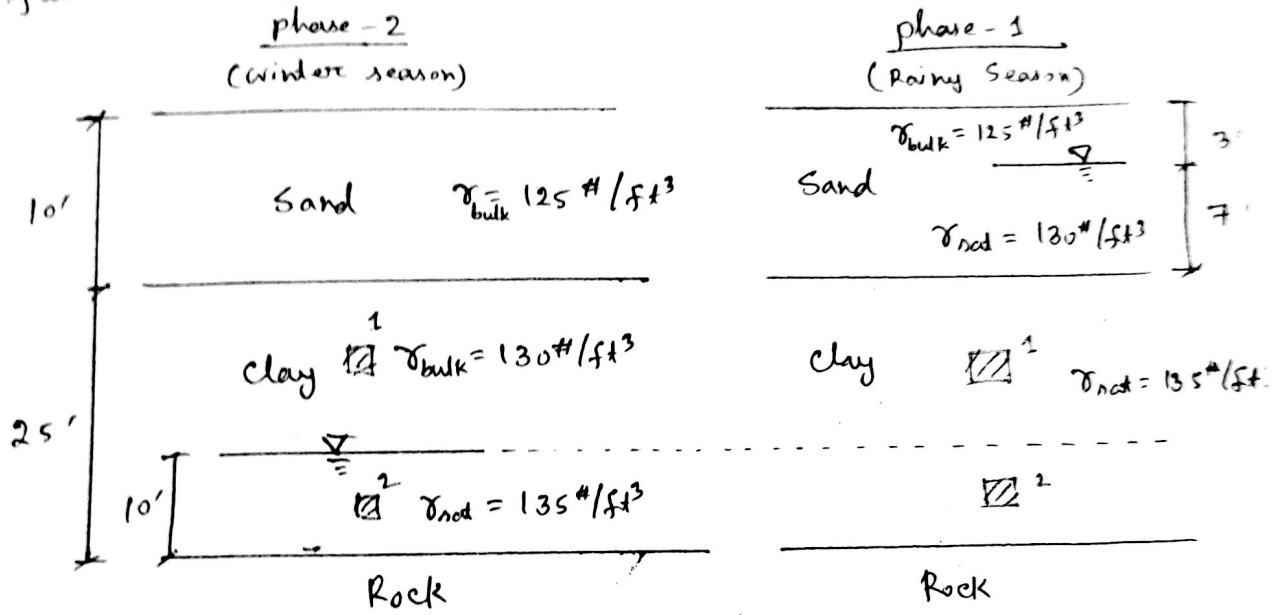 phase - 2
(winter season)
10'
Sand γbulk = 125 #/ft³
1
Clay γbulk = 130#/ft³
25'
10'
2
γsat = 135#/ft³
Rock
phase - 1
(Rainy Season)
γbulk = 125#/ft³
3'
Sand
γsat = 130#/ft³
7'
Clay
1
γsat = 135#/ft
2
Rock